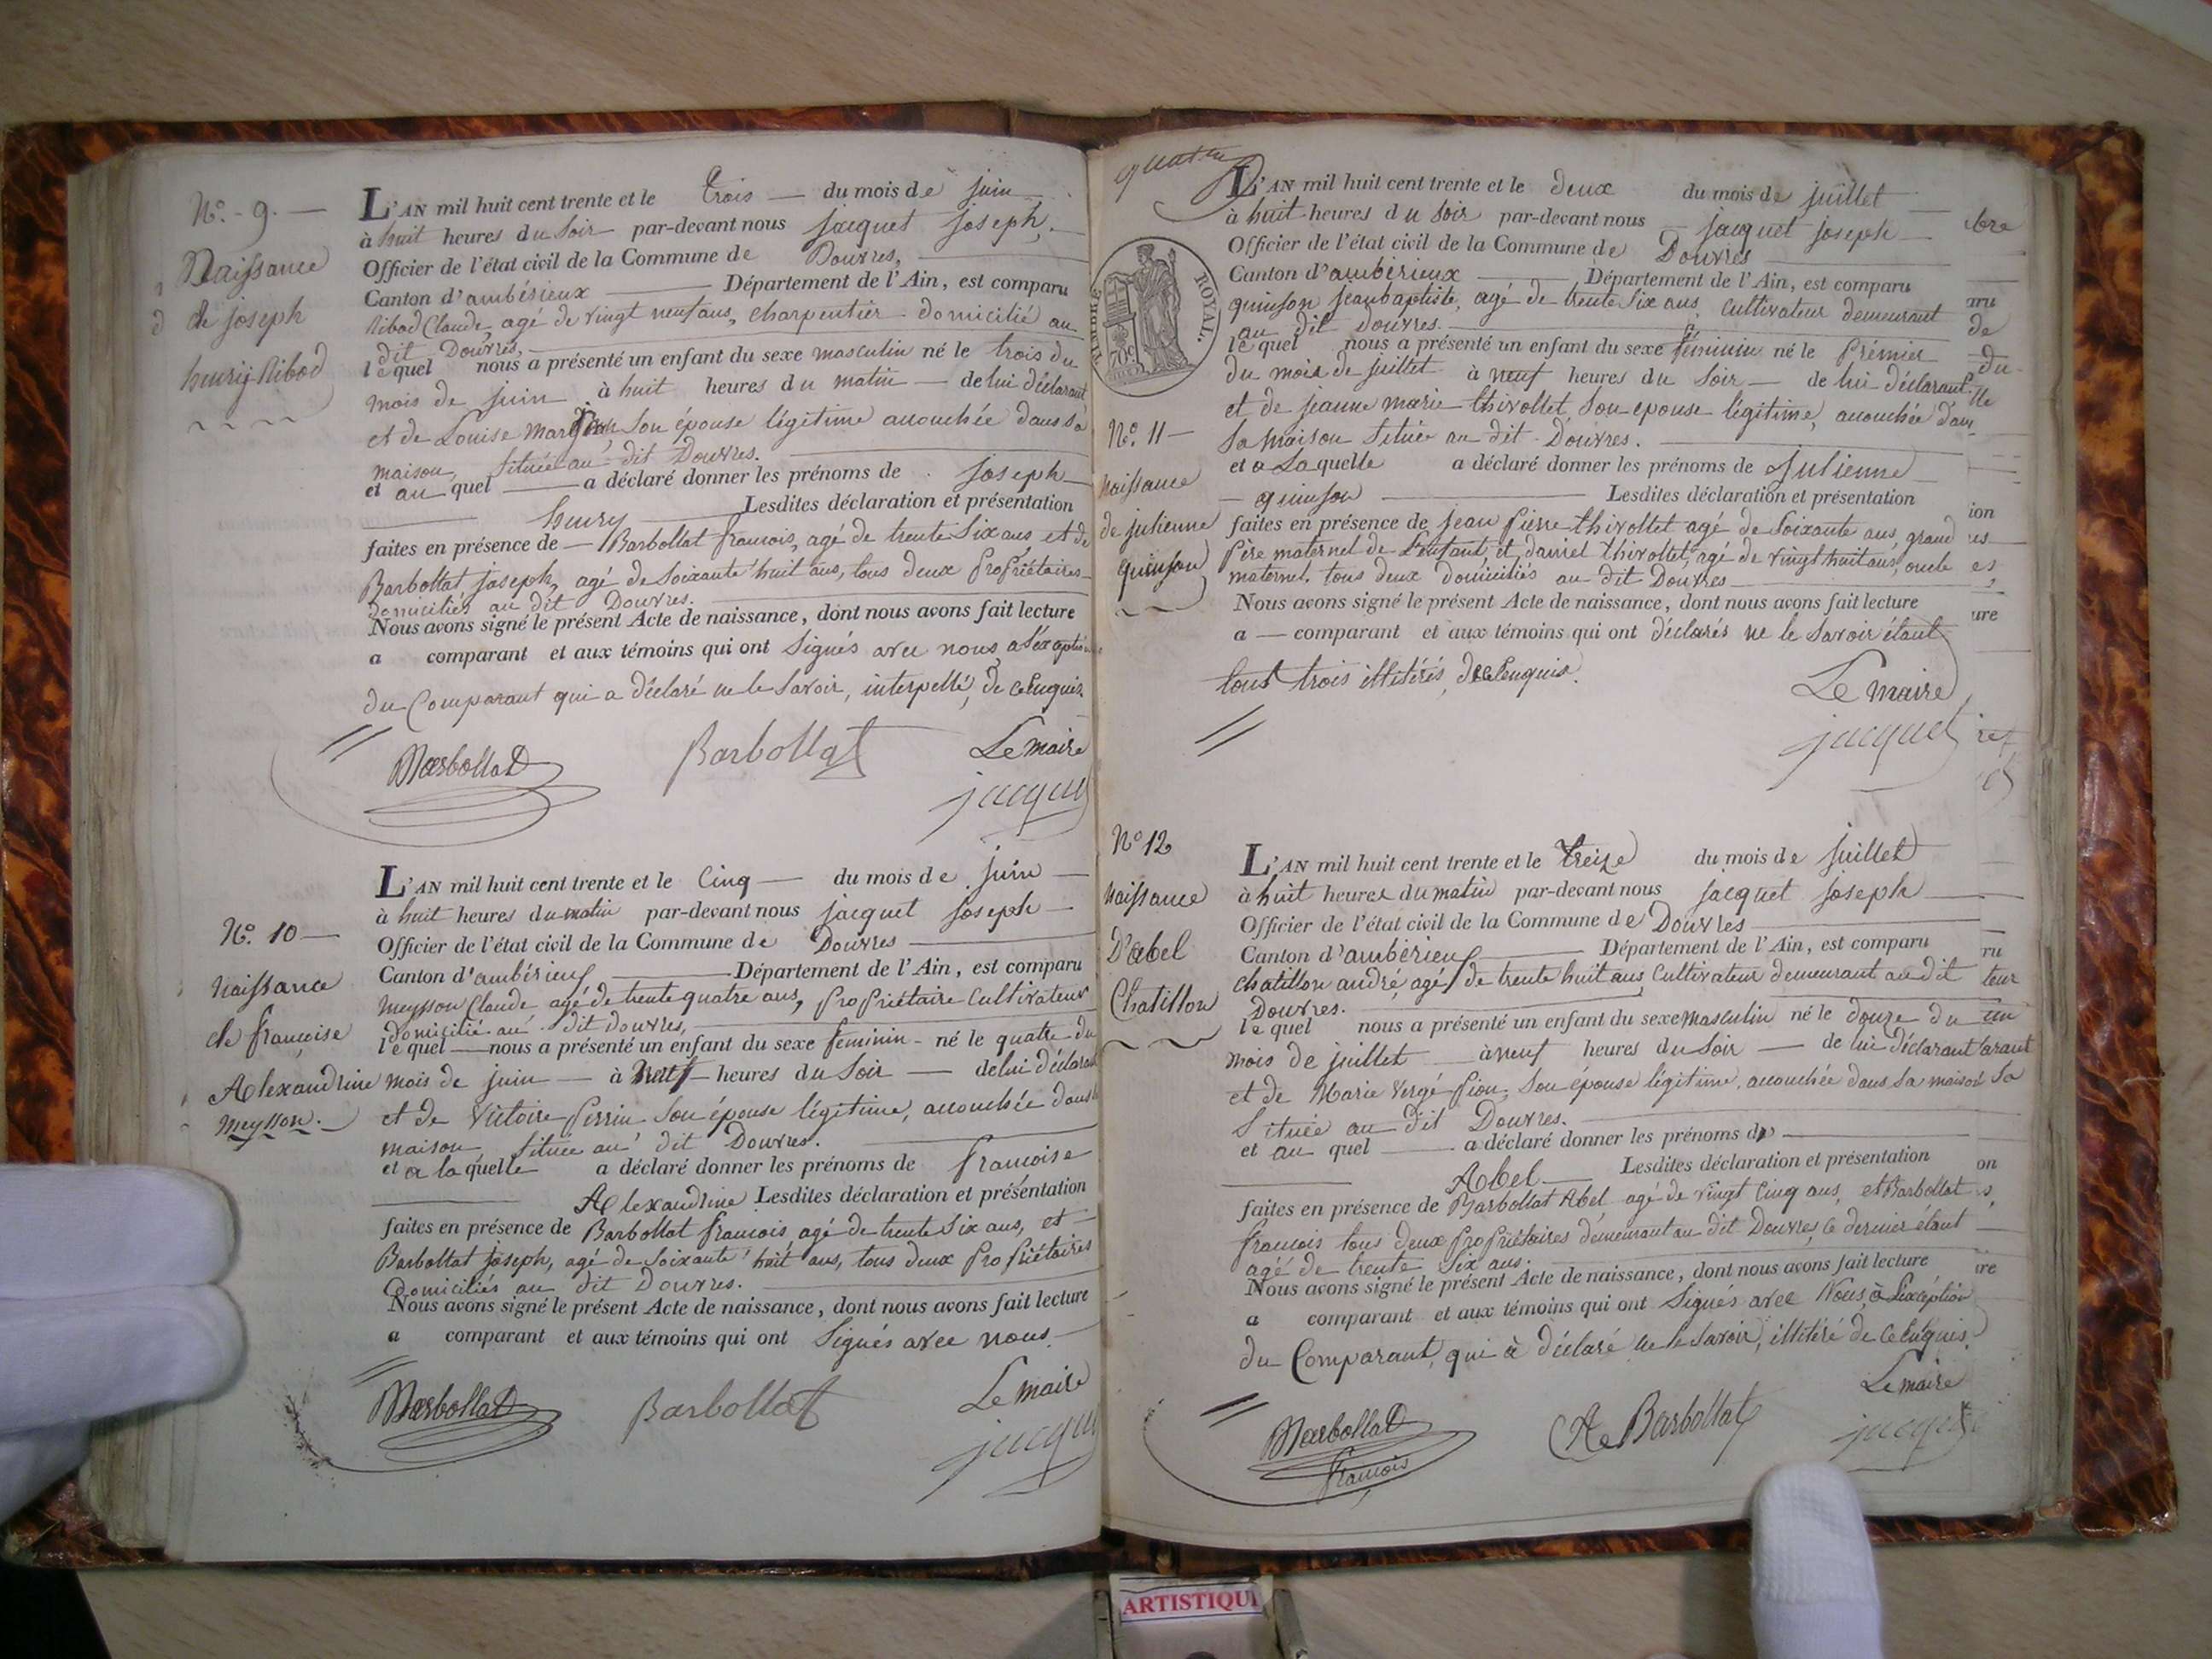 N.º - 9. —
Naissance
de joseph
henry Ribod
L'AN mil huit cent trente et le trois — du mois de juin
à huit heures du soir par-devant nous jacquet joseph,
Officier de l'état civil de la Commune de Douvres,
Canton d'ambérieux Département de l'Ain, est comparu
Ribod Claude, agé de vingt neuf ans, charpentier domicilié au
dit Douvres,
lequel nous a présenté un enfant du sexe masculin né le trois du
mois de juin à huit heures du matin — de lui déclarant
et de Louise son épouse légitime accouchée dans sa
maison, située au dit Douvres.
et au quel — a déclaré donner les prénoms de joseph
henry Lesdites déclaration et présentation
faites en présence de — Barbollat francois, agé de trente six ans, et de
Barbollat joseph, agé de soixante huit ans, tous deux Propriétaires
domiciliés au dit Douvres.
Nous avons signé le présent Acte de naissance, dont nous avons fait lecture
a comparant et aux témoins qui ont signés avec nous, a l'éxception
du Comparant qui a déclaré ne le savoir, interpellé, de ce Enquis.
Barbollat Barbollat Le maire
jacquet
N.º 10 —
naissance
de françoise
Alexandrine
meysson.
L'AN mil huit cent trente et le Cinq — du mois de juin —
à huit heures du matin par-devant nous jacquet joseph —
Officier de l'état civil de la Commune de Douvres
Canton d'ambérieux Département de l'Ain, est comparu
meysson Claude, agé de trente quatre ans, Propriétaire Cultivateur
domicilié au dit douvres,
lequel — nous a présenté un enfant du sexe féminin - né le quatre du
mois de juin — à neuf — heures du soir — de lui déclarant
et de Victoire Perrin son épouse légitime, accouchée dans sa
maison, située au dit Douvres.
et a la quelle a déclaré donner les prénoms de francoise
Alexandrine Lesdites déclaration et présentation
faites en présence de Barbollat francois, agé de trente six ans, et —
Barbollat joseph, agé de soixante huit ans, tous deux Propriétaires
Domiciliés au dit Douvres.
Nous avons signé le présent Acte de naissance, dont nous avons fait lecture
a comparant et aux témoins qui ont signés avec nous. —
Barbollat Barbollat Le maire
jacquet
quatre
ROYAL.
N.º 11 —
naissance
de julienne
quinson
L'AN mil huit cent trente et le deux du mois de juillet
à huit heures du soir par-devant nous jacquet joseph —
Officier de l'état civil de la Commune de Douvres
Canton d'ambérieux Département de l'Ain, est comparu
quinson jean baptiste, agé de trente six ans, cultivateur demeurant
au dit Douvres.
lequel nous a présenté un enfant du sexe féminin né le Prémier
du mois de juillet à neuf heures du soir — de lui déclarant
et de jeanne marie thivollet, son epouse légitime, accouchée dans
sa maison située au dit Douvres.
et a Laquelle a déclaré donner les prénoms de julienne
— quinson Lesdites déclaration et présentation
faites en présence de jean pierre thivollet agé de soixante ans, grand
Père maternel de L'enfant, et daniel thivollet, agé de vingt huit ans, oncle
maternel, tous deux domiciliés au dit Douvres
Nous avons signé le présent Acte de naissance, dont nous avons fait lecture
a — comparant et aux témoins qui ont déclarés ne le savoir étant
tous trois illitérés, de ce enquis.
Le maire
jacquet
N.º 12
naissance
D'abel
Chatillon
L'AN mil huit cent trente et le treize du mois de juillet
à huit heures du matin par-devant nous jacquet joseph
Officier de l'état civil de la Commune de Douvres
Canton d'ambérieux Département de l'Ain, est comparu
Chatillon andré, agé de trente huit ans, Cultivateur demeurant au dit
Douvres.
lequel nous a présenté un enfant du sexe masculin né le douze du
mois de juillet — à neuf heures du soir — de lui déclarant
et de Marie Vergé Pion, son épouse légitime, accouchée dans sa maison
située au dit Douvres.
et au quel — a déclaré donner les prénoms de
Abel — Lesdites déclaration et présentation
faites en présence de Barbollat Abel agé de vingt Cinq ans, et Barbollat
francois tous deux Propriétaires demeurant au dit Douvres, ce dernier étant
agé de trente six ans.
Nous avons signé le présent Acte de naissance, dont nous avons fait lecture
a comparant et aux témoins qui ont signés avec Nous, à L'exception
du Comparant, qui à déclaré ne le savoir, illitéré de ce Enquis.
Le maire
Barbollat A Barbollat jacquet
francois
ARTISTIQU